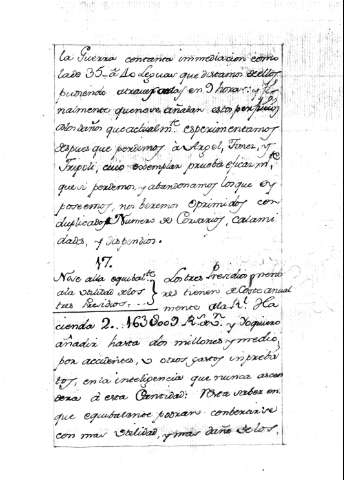 la Guerra contanta immediacion como
lade 35 â 40 Leguas que distamos deellos
pudiendo atravesarlas en 9 horas: y fi-
nalmente quenose añadan estos perjuicios
alosdaños queactualmte esperimentamos
despues que perdimos à Argel, Tunez, y
Tripoli, cuio exemplar prueba eficazmte
que si perdemos, y abandonamos losque oy
poseemos, nos veremos oprimidos con
duplicado Numero de Corsarios, calami
dades, y dispendios.
17.
Nose alla equibalte
ala utilidad delos
tres Presidios...
Lostres Presidios meno
res tienen de Costo anual
mente ala Rl. Ha
cienda 2..163 800 9 Rs. Vn. y Yoquiero
añadir hasta dos millones y medio
por accidentes, u otros gastos inprebis
tos, enla inteligencia que nunca ascen
dera à esta Cantidad: Resta saber en
que equibalente podran combertirse
con mas utilidad, y mas daño delos